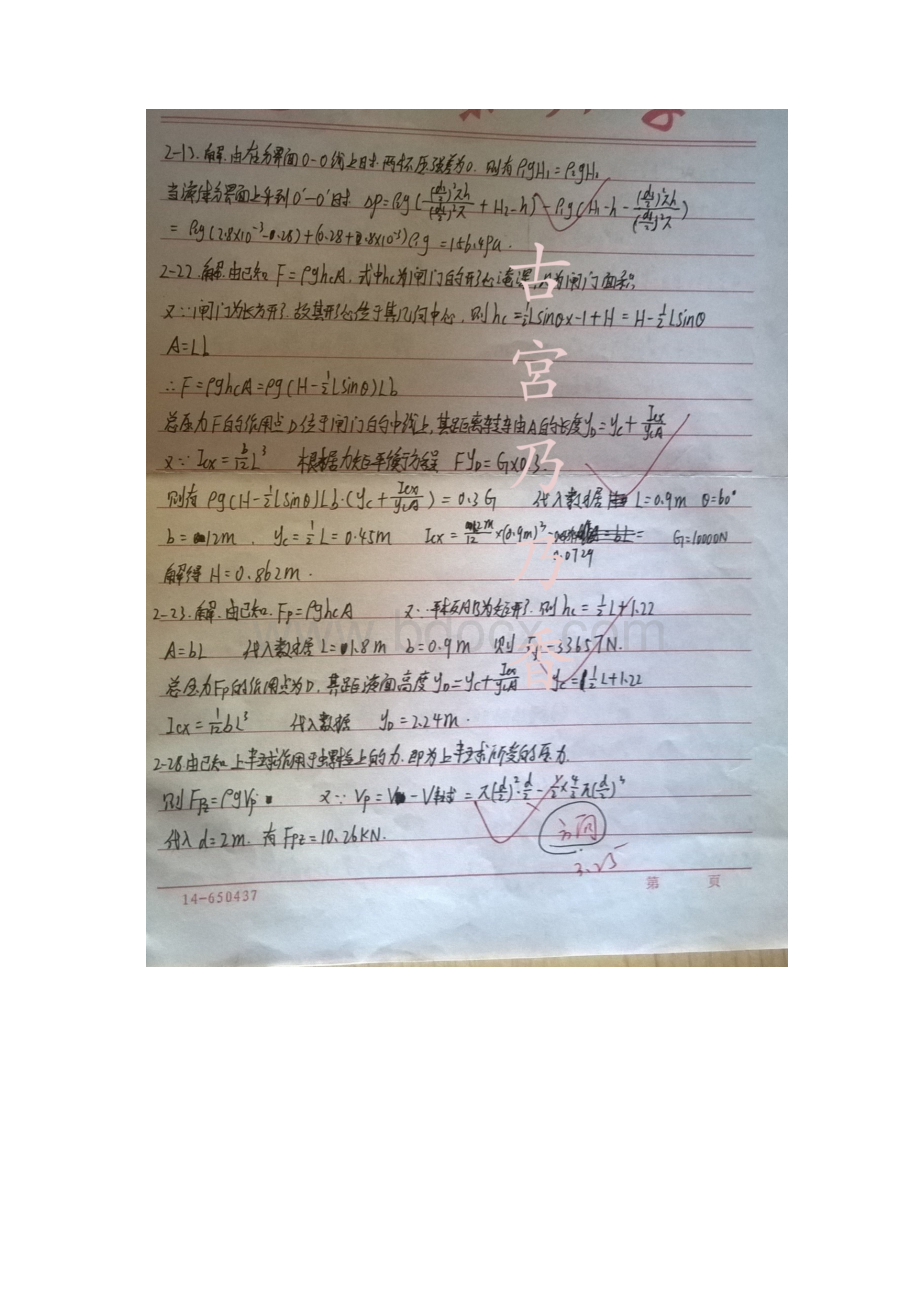 2-13.解.由在分界面0-0线上时.两杯压强差为0.则有ρ1gH1=ρ2gH2
当液体分界面上升到0'-0'时 Δp=ρ2g(
= ρ2g(2.8×10⁻³-0.28)+(0.28+2.8×10⁻³)ρ1g=156.4Pa.
2-22.解.由已知 F=ρghcA, 式中hc为闸门的形心淹深,A为闸门面积.
又∵闸门为长方形.故其形心位于其几何中心,则hc=½Lsinθ×-1+H=H-½Lsinθ
A=Lb
∴F=ρghcA=ρg(H-½Lsinθ)Lb
总压力F的作用点D位于闸门的中线上,其距离转轴A的长度yD=yc+Icx/ycA
又∵Icx=b/12L³ 根据力矩平衡方程 FyD=G×0.3.
则有ρg(H-½Lsinθ)Lb·(yc+Icx/ycA)=0.3G 代入数据 L=0.9m θ=60°
b=1.2m, yc=½L=0.45m Icx=1.2m/12×(0.9m)³ G=10000N
0.0729
解得H=0.862m.
2-23.解.由已知.Fp=ρghcA 又∵平板AB为矩形.则hc=½L+1.22
A=bL 代入数据L=1.8m b=0.9m 则 =33657N.
总压力Fp的作用点为D,其距液面高度yD=yc+Icx/ycA yc=½L+1.22
Icx=1/12bL³ 代入数据 yD=2.24m.
2-28.由已知上半球作用于螺栓上的力.即为上半球所受的压力.
则FPZ=ρgVp 又∵Vp= =π(d/2)²·d/2-½×4/3π(d/2)³
代入d=2m.有FPZ=10.26KN.
方向
3.25
14-650437
第 頁
古宮乃乃春